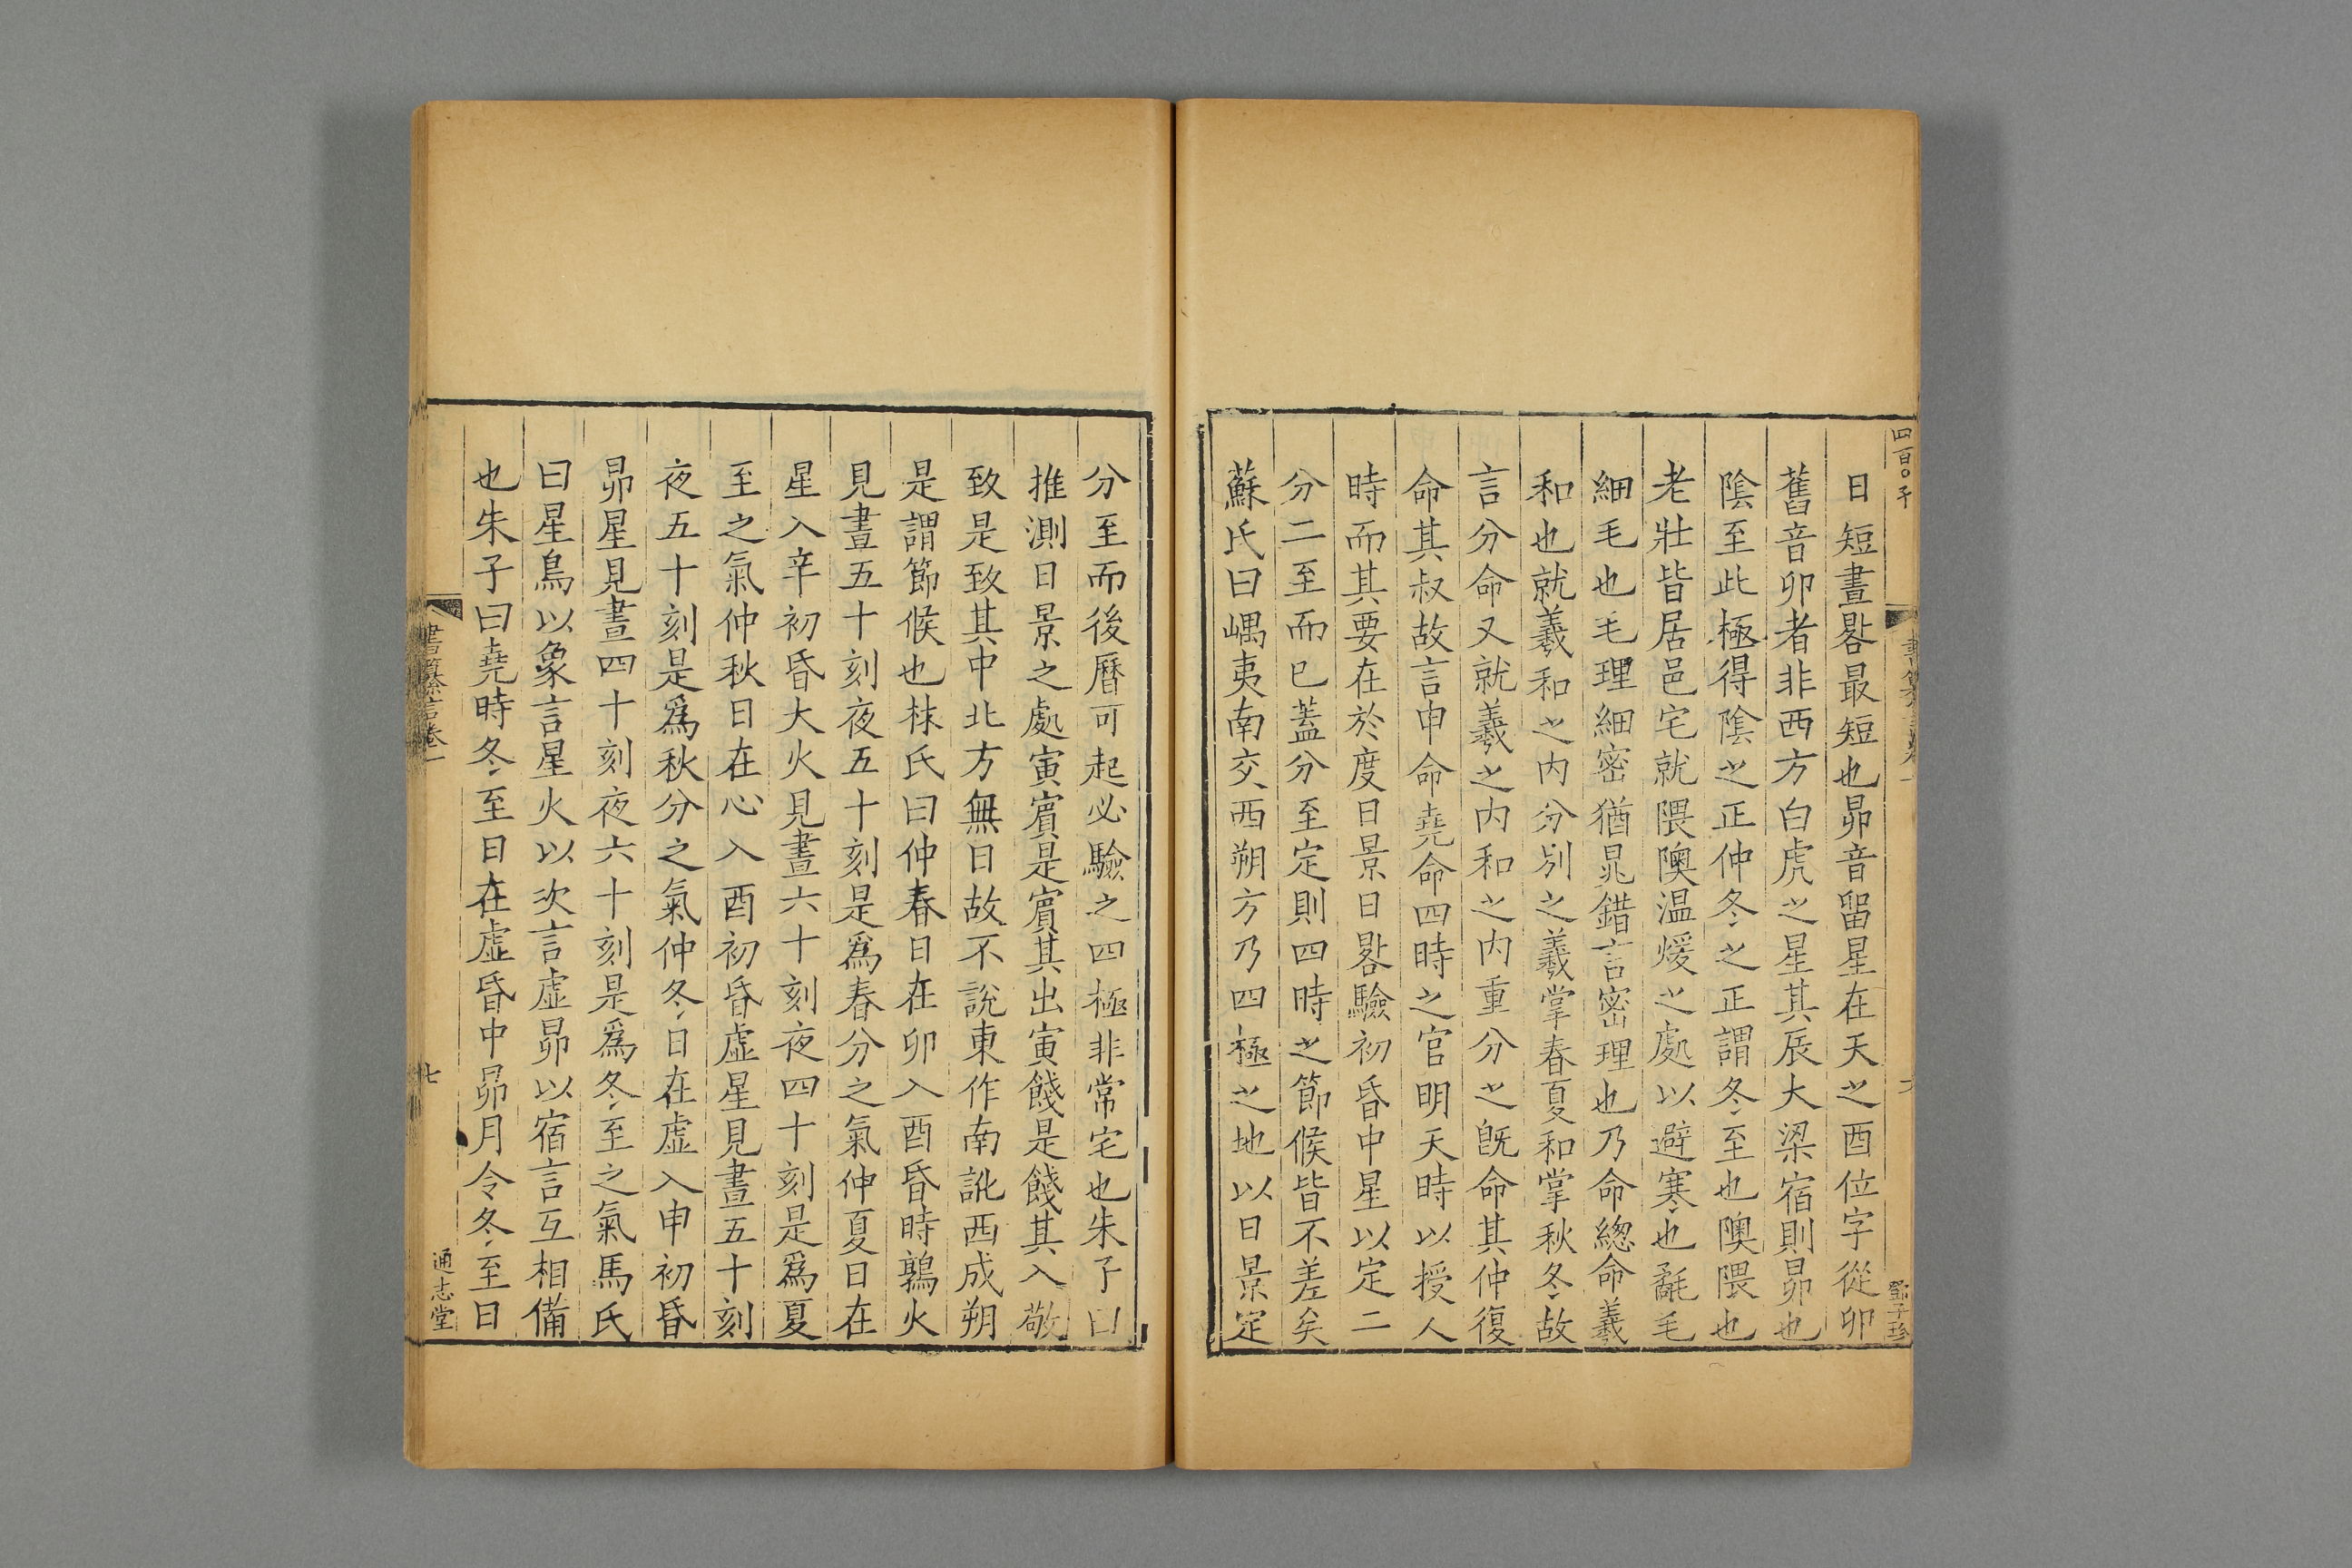 日短晝晷最短也昴音留星在天之酉位字從卯
舊音卯者非西方白虎之星其辰大梁宿則昴也
陰至此極得陰之正仲冬之正謂冬至也隩隈也
老壯皆居邑宅就隈隩温煖之處以避寒也氄毛
細毛也毛理細密猶晁錯言密理也乃命總命羲
和也就羲和之内分别之羲掌春夏和掌秋冬故
言分命又就羲之内和之内重分之旣命其仲復
命其叔故言申命堯命四時之官明天時以授人
時而其要在於度日景日晷驗初昏中星以定二
分二至而已蓋分至定則四時之節候皆不差矣
蘇氏曰嵎夷南交西朔方乃四極之地以日景定
分至而後曆可起必驗之四極非常宅也朱子曰
推測日景之處寅賔是賔其出寅餞是餞其入敬
致是致其中北方無日故不說東作南訛西成朔
是謂節候也林氏曰仲春日在卯入酉昏時鶉火
見晝五十刻夜五十刻是爲春分之氣仲夏日在
星入辛初昏大火見晝六十刻夜四十刻是爲夏
至之氣仲秋日在心入酉初昏虛星見晝五十刻
夜五十刻是爲秋分之氣仲冬日在虛入申初昏
昴星見晝四十刻夜六十刻是爲冬至之氣馬氏
曰星鳥以象言星火以次言虛昴以宿言互相備
也朱子曰堯時冬至日在虛昏中昴月令冬至日
書纂言卷一
七
通志堂